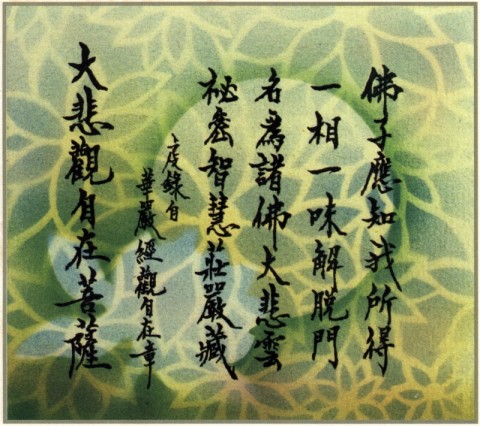 佛子應知我所得
一相一味解脫門
名為諸佛大悲雲
秘密智慧莊嚴藏
庋錄自
華嚴經觀自在章
大悲觀自在菩薩